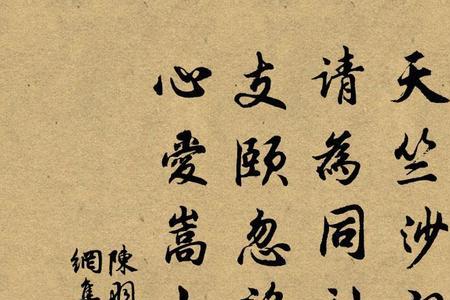 天竺沙
请為同
支頤忽
心愛嵩
陳羽
網集